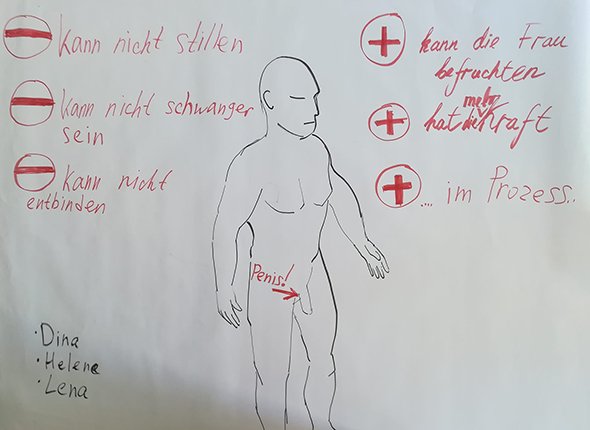 kann nicht stillen
kann nicht schwanger
sein
kann nicht
entbinden
kann die Frau
befruchten
mehr
hat Kraft
.... im Prozess..
Penis!
· Dina
· Helene
· Lena